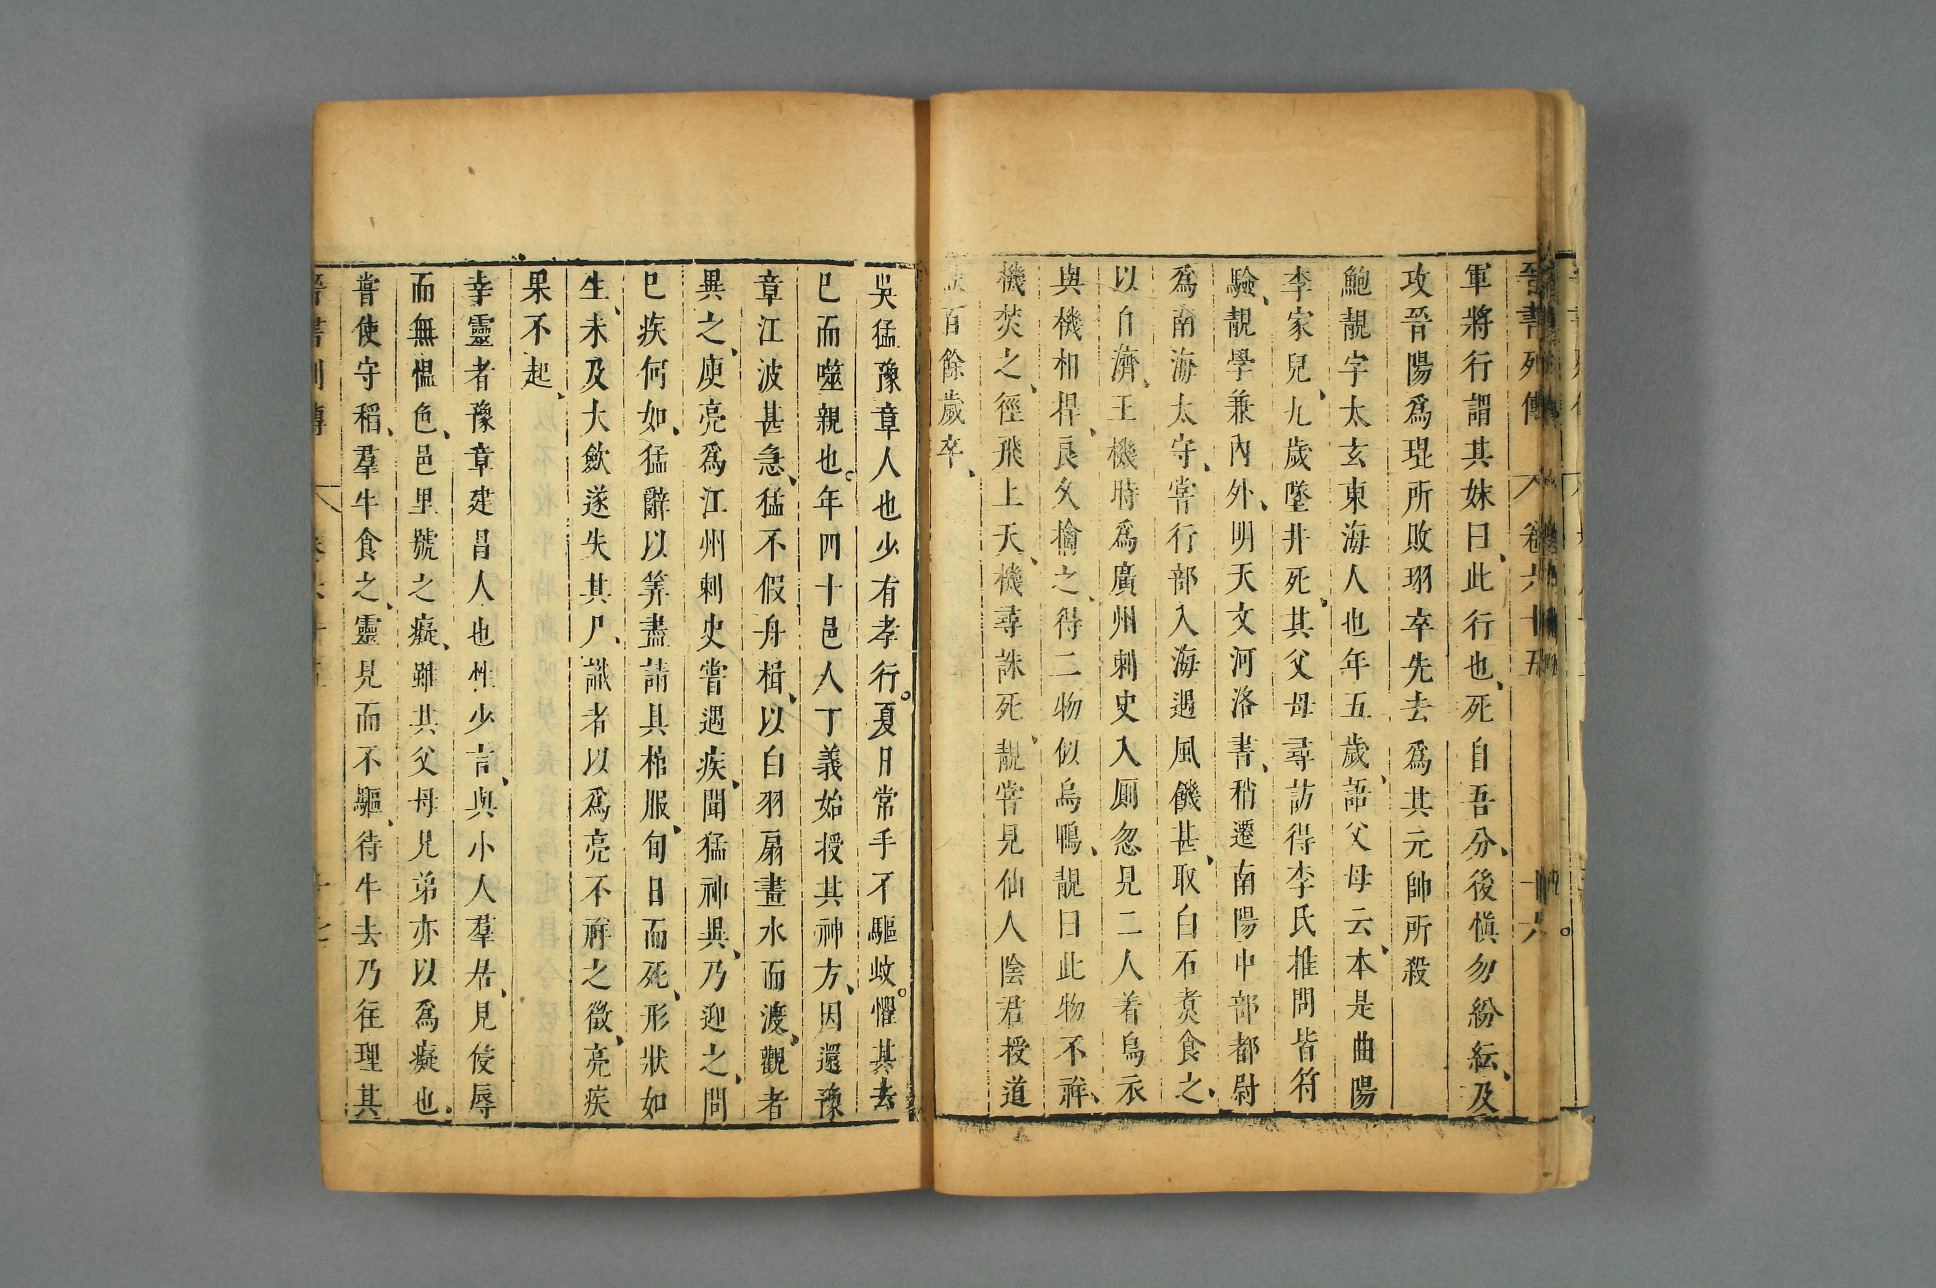 晉書列傳 卷六十五 十六
軍將行謂其妹曰、此行也、死自吾分、後愼勿紛紜、及
攻晉陽爲琨所敗珝卒先去爲其元帥所殺
鮑靚字太玄東海人也年五歲、語父母云、本是曲陽
李家兒、九歲墜井死、其父母尋訪得李氏推問皆符
驗、靚學兼內外、明天文河洛書、稍遷南陽中部都尉
爲南海太守、嘗行部入海遇風饑甚、取白石煑食之、
以自濟、王機時爲廣州刺史入厠忽見二人着烏衣
與機相捍、良久擒之、得二物似烏鴨、靚曰此物不祥、
機焚之、徑飛上天、機尋誅死、靚嘗見仙人陰君授道
訣百餘歲卒、
吳猛豫章人也少有孝行。夏日常手不驅蚊。懼其去
巳而噬親也。年四十邑人丁義始授其神方、因還豫
章江波甚急、猛不假舟楫、以白羽扇畫水而渡、觀者
異之、庾亮爲江州刺史嘗遇疾、聞猛神異、乃迎之、問
巳疾何如、猛辭以筭盡請具棺服、旬日而死、形狀如
生、未及大歛遂失其尸、識者以爲亮不祥之徵、亮疾
果不起、
幸靈者豫章建昌人也性少言、與小人羣居、見侵辱
而無慍色、邑里號之癡、雖其父母兄弟亦以爲癡也、
嘗使守稻、羣牛食之、靈見而不驅、待牛去乃往理其
晉書列傳